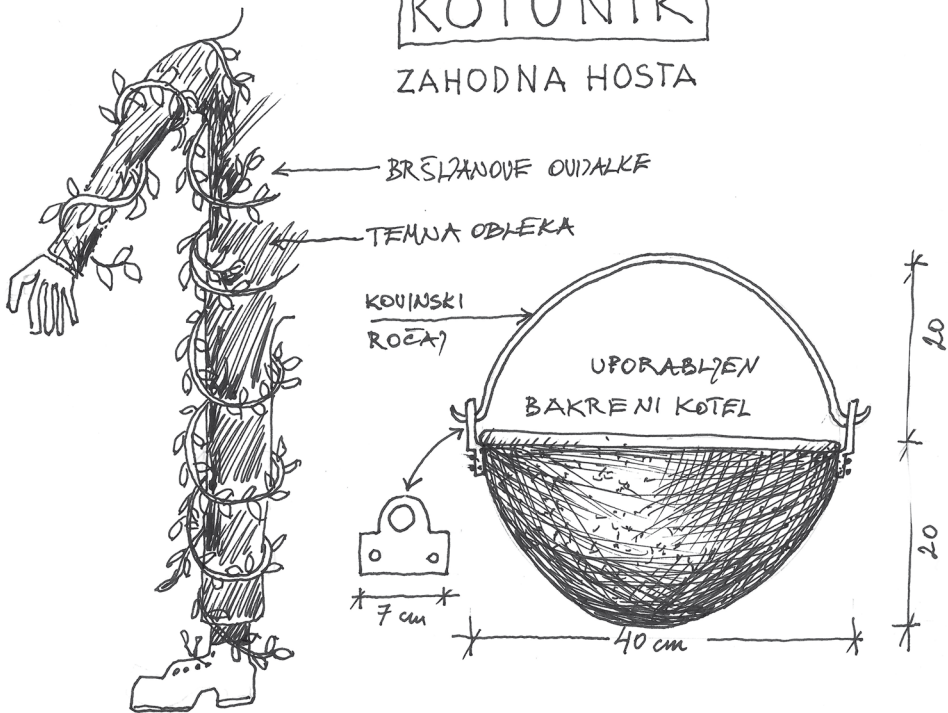 KOTUNIK
ZAHODNA HOSTA
BRŠLJANOVE OVIJALKE
TEMNA OBLEKA
KOVINSKI
ROČAJ
UPORABLJEN
BAKRENI KOTEL
20
20
7 cm
40 cm